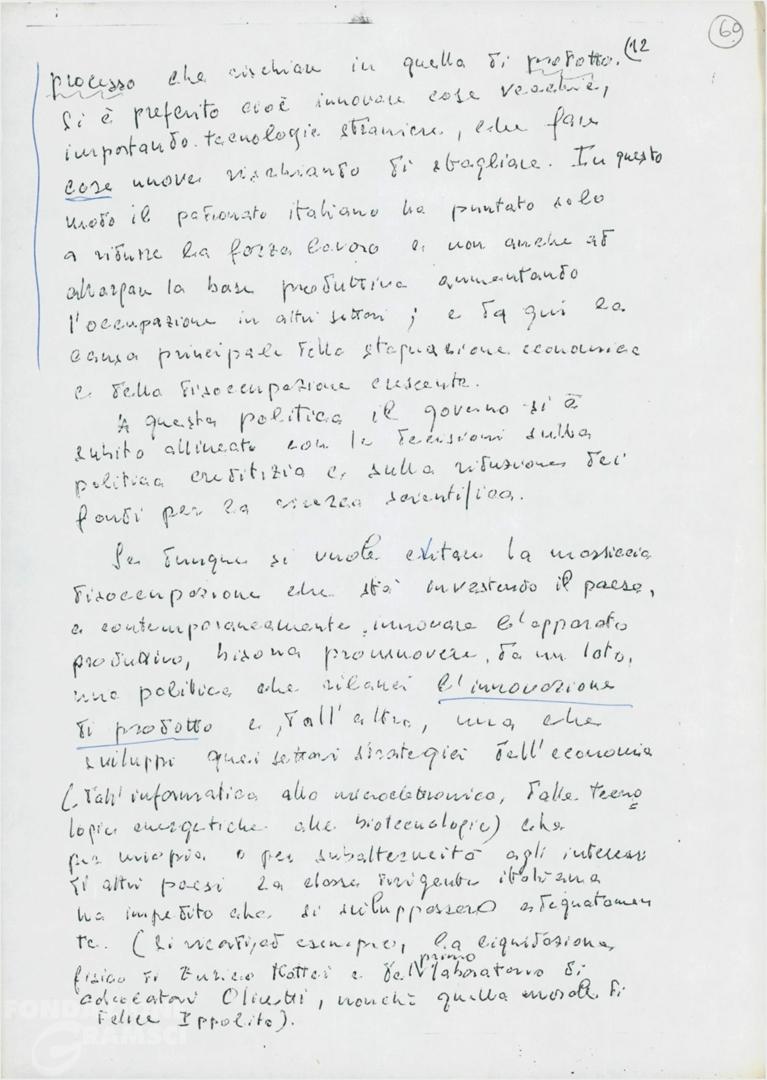 60
(12
processo che rischiare in quella di prodotto.
Si è preferito cioè innovare cose vecchie,
importando tecnologie straniere, che fare
cose nuove rischiando di sbagliare. In questo
modo il padronato italiano ha puntato solo
a ridurre la forza lavoro e non anche ad
allargare la base produttiva aumentando
l'occupazione in altri settori; e da qui la
causa principale della stagnazione economica
e della disoccupazione crescente.
A questa politica il governo si è
subito allineato con le decisioni sulla
politica creditizia e sulla riduzione dei
fondi per la ricerca scientifica.
Se dunque si vuole evitare la massiccia
disoccupazione che sta investendo il paese,
e contemporaneamente innovare l'apparato
produttivo, bisogna promuovere, da un lato,
una politica che rilanci l'innovazione
di prodotto e, dall'altro, una che
sviluppi quei settori strategici dell'economia
(dall'informatica alla microelettronica, dalle tecno
logie energetiche alle biotecnologie) che
per miopia o per subalternità agli interessi
di altri paesi la classe dirigente italiana
ha impedito che si sviluppassero adeguatamen
te. (Si ricordi, ad esempio, la liquidazione
fisica di Enrico Mattei e del primo laboratorio di
calcolatori Olivetti, nonché quella morale di
Felice Ippolito).
FONDAZIONE
GRAMSCI